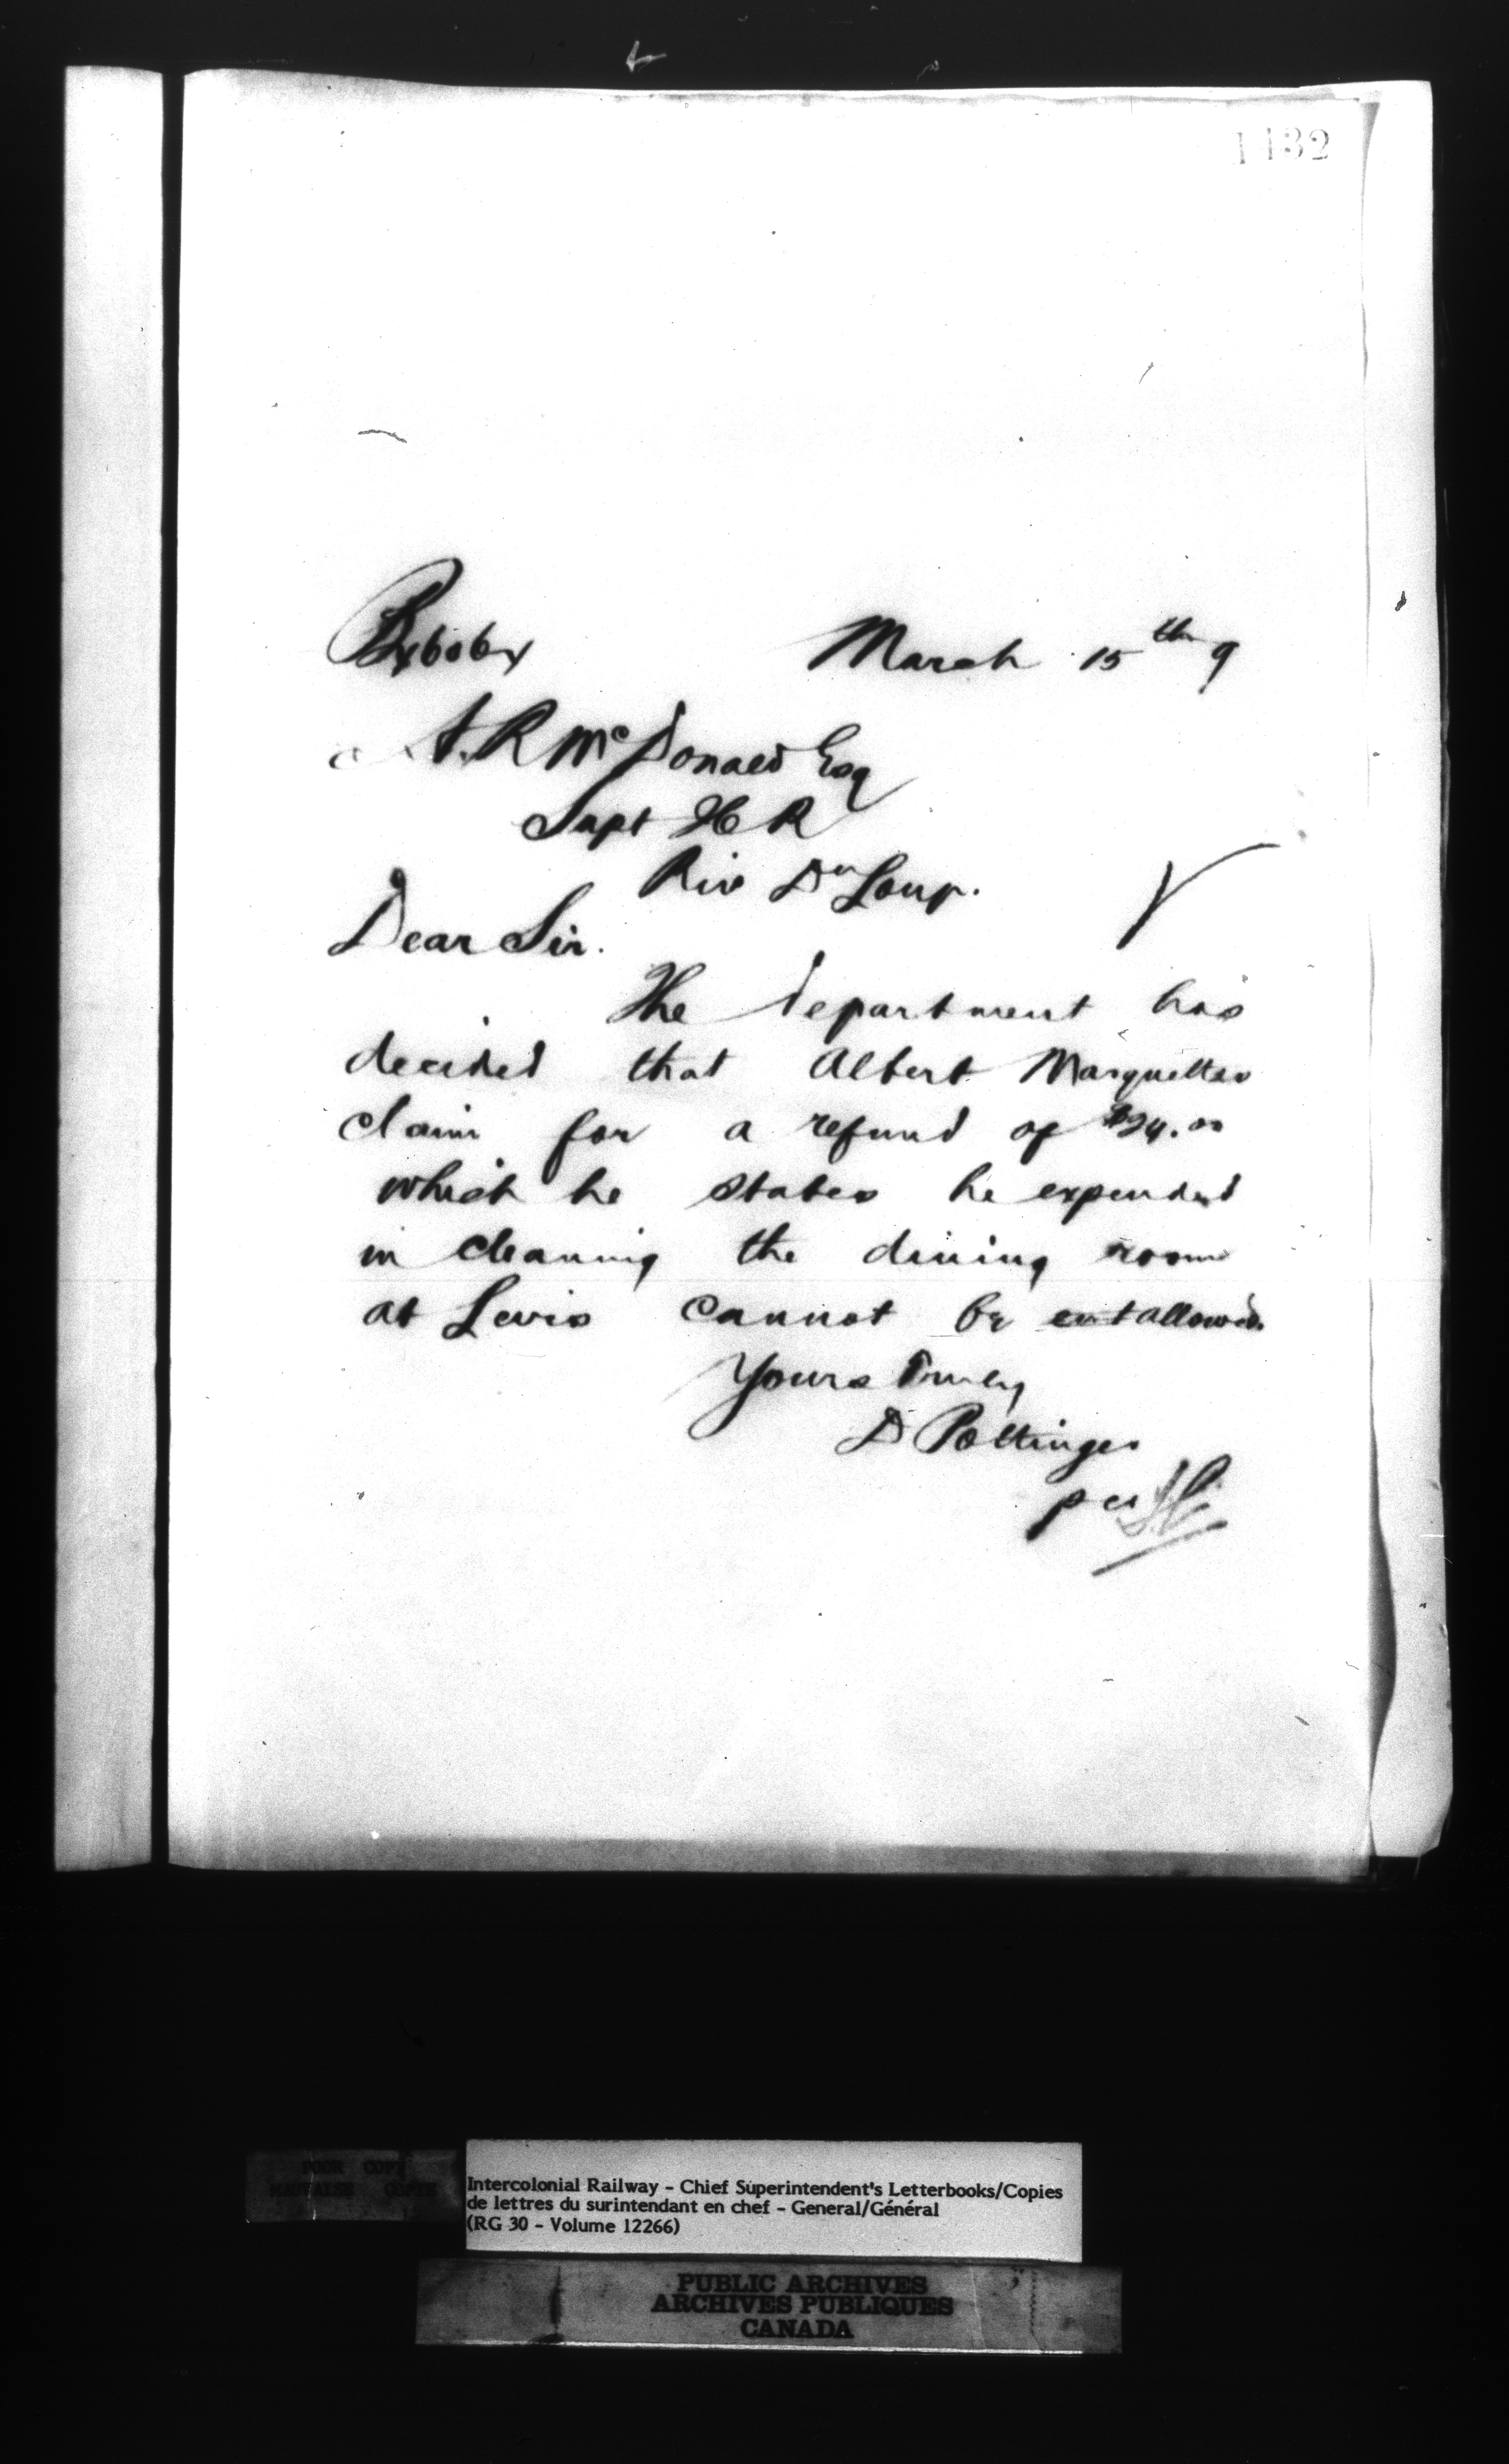 1132
March 15th 9
A. R. McDonald Esq
Supt
Riv Du Loup.
Dear Sir.
The department has
decided that Albert Marquettes
claim for a refund of $24.00
which he states he expended
in cleaning the dining room
at Levis cannot be allowed.
Yours Truly
D Pottinger
per
POOR COPY
MAUVAISE COPIE
Intercolonial Railway - Chief Superintendent's Letterbooks/Copies
de lettres du surintendant en chef - General/Général
(RG 30 - Volume 12266)
PUBLIC ARCHIVES
ARCHIVES PUBLIQUES
CANADA